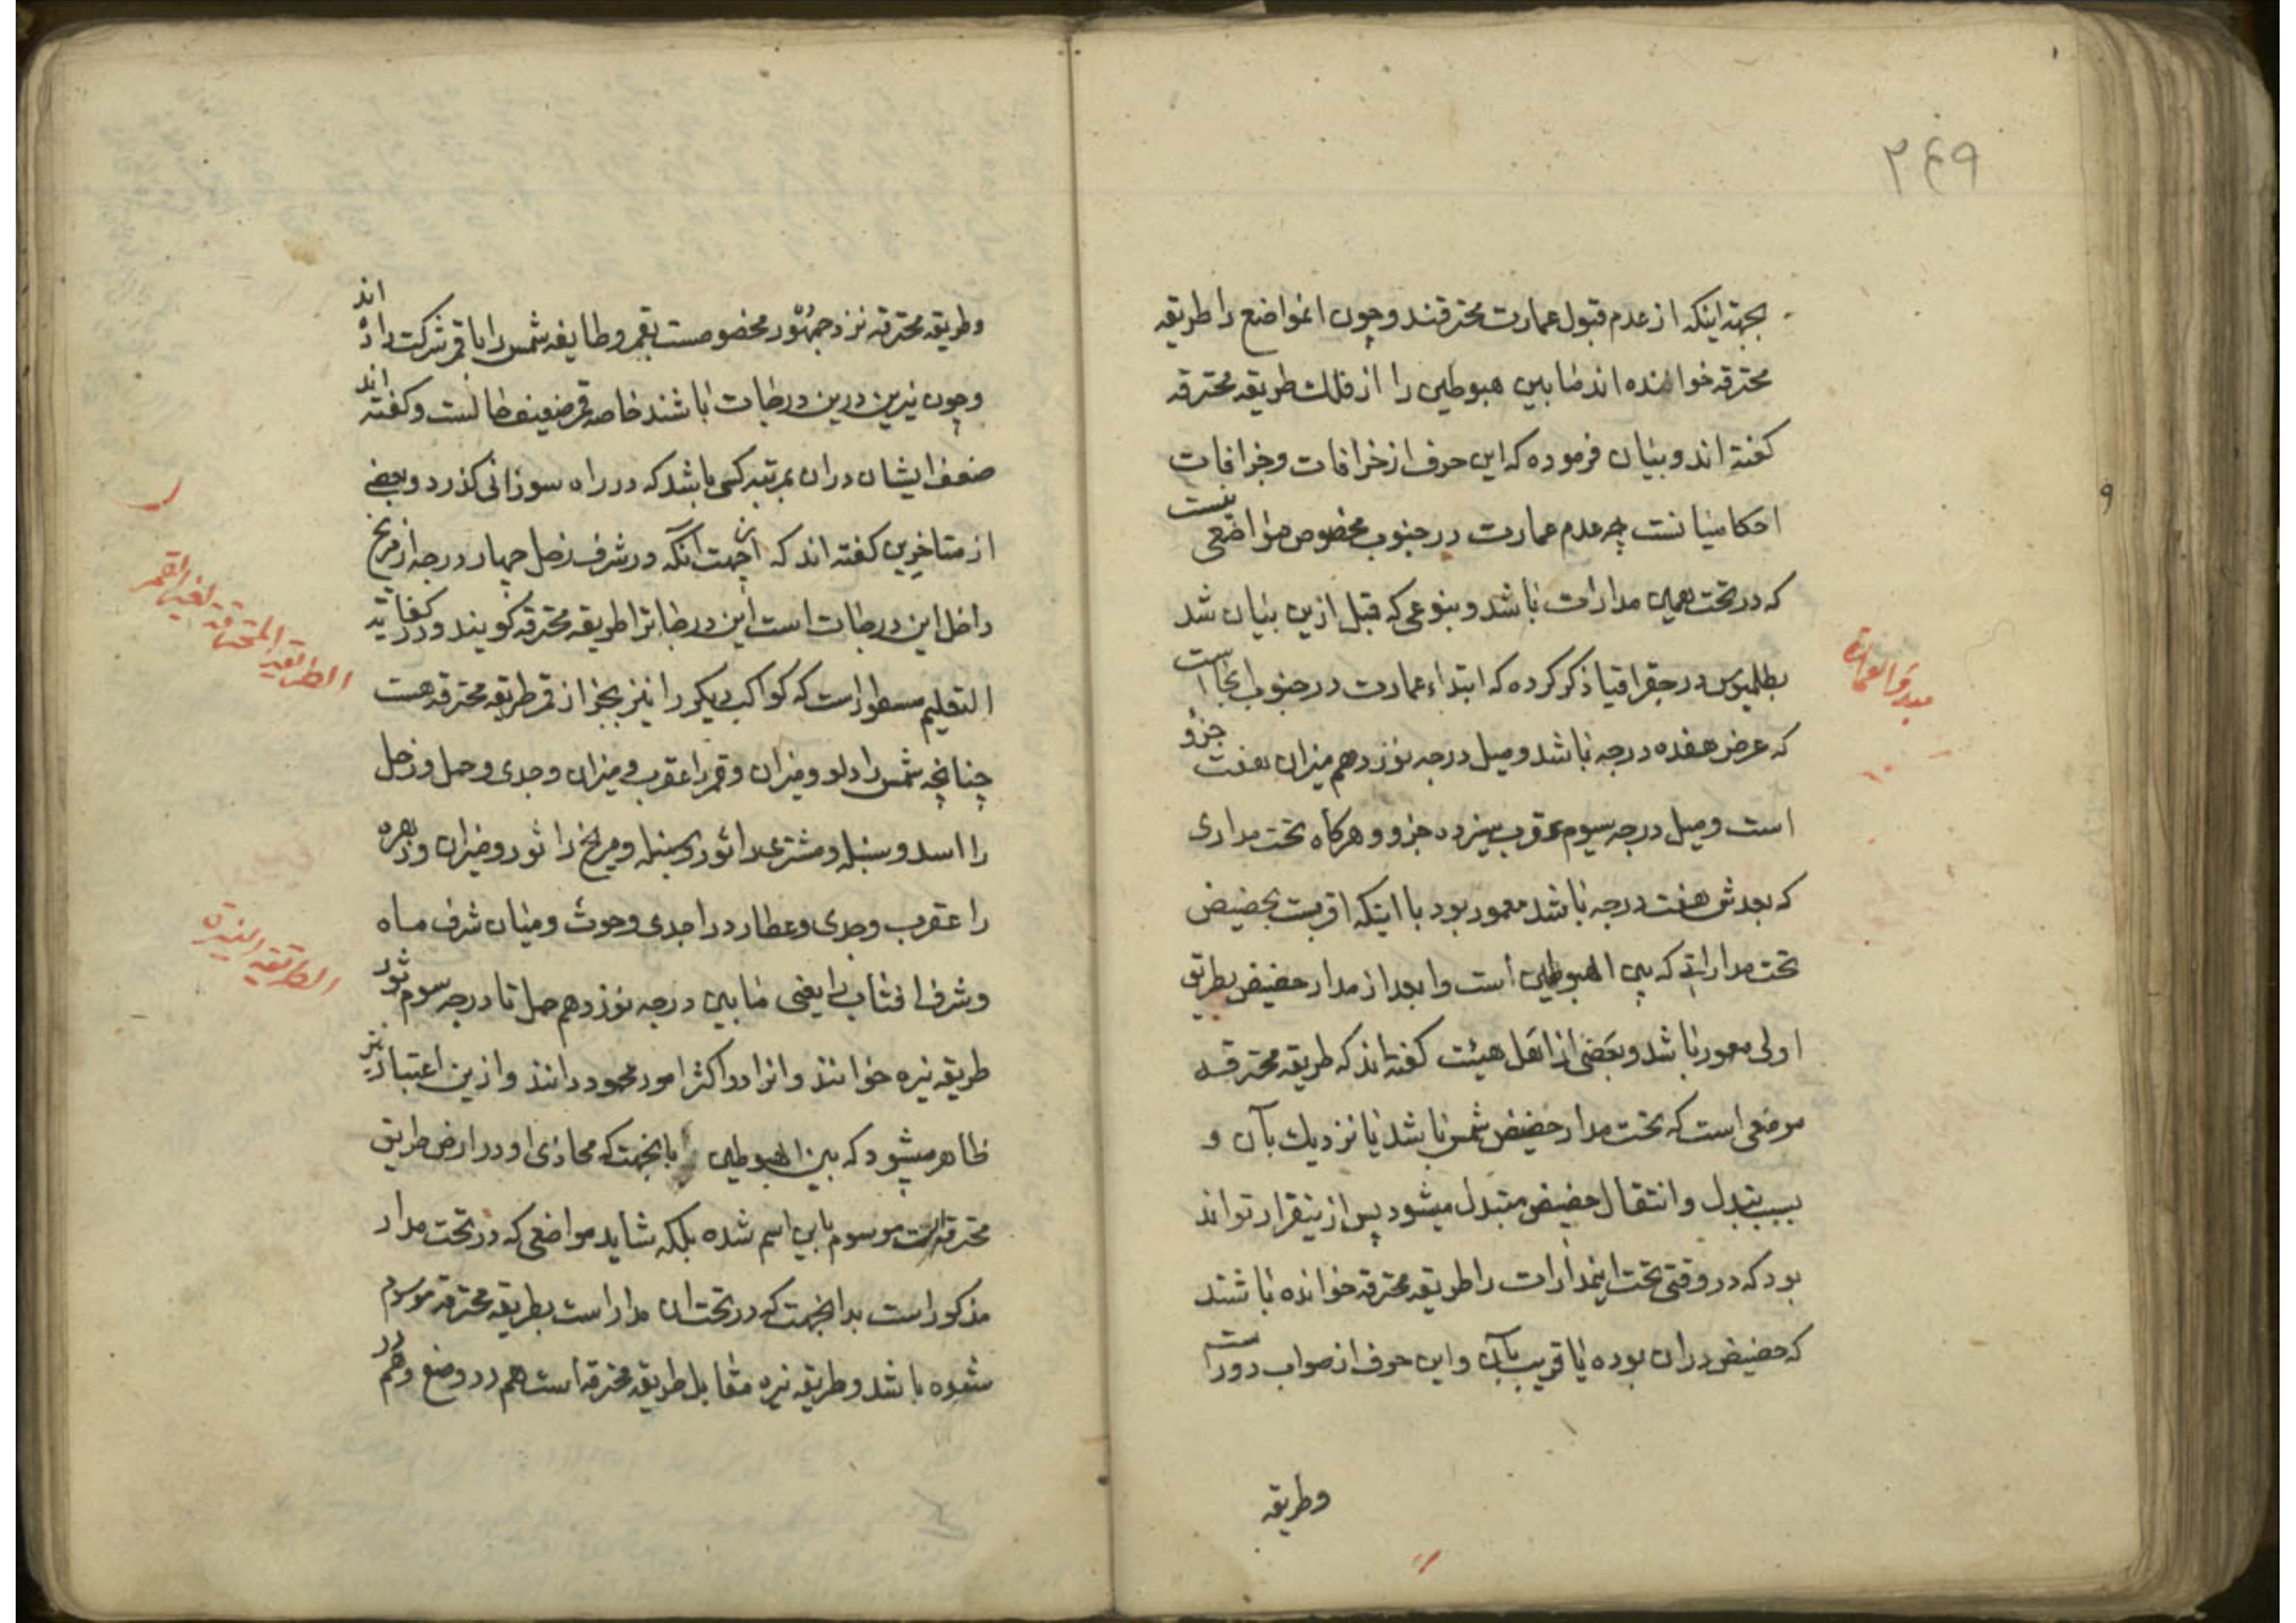 ۲۴۹
بجهة اینکه از عدم قبول عمارت محترقند وچون انمواضع را طریقه
محترقه خوانده اند ما بین هبوطین را از فلك طریقه محترقه
کفته اند و بیان فرموده که این حرف از خرافات وجزافات
احکامیانست چه عدم عمارت در جنوب مخصوص مواضعی نیست
که در تحت همین مدارات باشد وبنوعی که قبل ازین بیان شد
بطلمیوس در جغرافیا ذکر کرده که ابتداء عمارت در جنوب انجا است
که عرض هفده درجه باشد ومیل درجه نوزدهم میزان هفت جزو
است ومیل درجه سیوم عقرب سیزده جزو وهرکاه تحت مداری
که بعدش هفت درجه باشد معمور بود با اینکه اقربست بحضیض
تحت مداراتی که بین الهبوطین است وابعد از مدار حضیض بطریق
اولی معمور باشد وبعضی از اهل هیئت کفته اند که طریقه محترقه
موضعی است که تحت مدار حضیض شمس باشد یا نزدیك بآن و
بسبب تبدل وانتقال حضیض متبدل میشود پس ازینقرار تواند
بود که در وقتی تحت اینمدارات را طریقه محترقه خوانده باشند
که حضیض دران بوده یا قریب بآن واین حرف از صواب دور است
وطریقه
مبدء العمارة
وطریقه محترقه نزد جمهور مخصوصست بقمر وطایفه شمس را با قمر شرکت داده اند
وچون نیرین درین درجات باشند خاصه قمر ضعیف حالست وکفته اند
ضعف ایشان دران بمرتبه کسی باشد که در راه سوزانی کذرد وبعضی
از متاخرین کفته اند که ازجهت انکه در شرف زحل چهار درجه از مریخ
داخل این درجات است این درجات را طریقه محترقه کویند ودر کفایة
التعلیم مسطور است که کواکب دیکر را نیز بجز از قمر طریقه محترقه هست
چنانچه شمس را دلو ومیزان وقمر را عقرب ومیزان وجدی وحمل وزحل
را اسد وسنبله ومشتری را ثور وسنبله ومریخ را ثور ومیزان وزهره
را عقرب وجدی وعطارد را جدی وحوت ومیان شرف ماه
وشرف افتاب را یعنی ما بین درجه نوزدهم حمل تا درجه سوم ثور
طریقه نیره خوانند وانرا در اکثر امور محمود دانند وازین اعتبار نیز
ظاهر میشود که بین الهبوطین بانجهت که محاذی او در ارض طریق
محترقه است موسوم باین اسم شده بلکه شاید مواضعی که در تحت مدار
مذکور است بدانجهت که در تحت ان مدار است بطریقه محترقه موسوم
شده باشد وطریقه نیره مقابل طریقه محترقه است هم در وضع وهم در
الطریقة المحترقة لغیر القمر
الطریقه النیرة